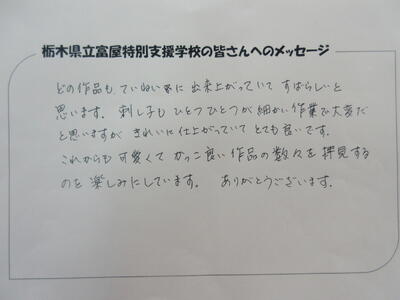 栃木県立富屋特別支援学校の皆さんへのメッセージ
どの作品も、ていねいに出来上がっていて すばらしいと
思います。刺し子も ひとつひとつが 細かい作業で大変だ
と思いますが きれいに仕上がっていて とても良いです。
これからも 可愛くて かっこ良い 作品の数々を 拝見する
のを 楽しみにしています。 ありがとうございます。